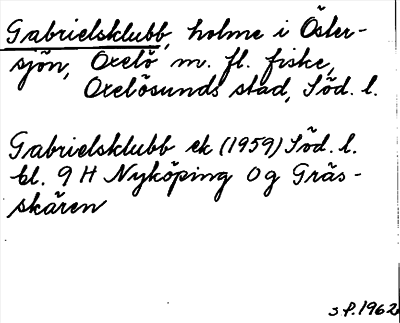 Gabrielsklubb, holme i Öster-
sjön, Oxelö m. fl. fiske,
Oxelösunds stad, Söd. l.
Gabrielsklubb ek (1959) Söd. l.
bl. 9 H Nyköping 0 g Gräs-
skären
s p. 1962